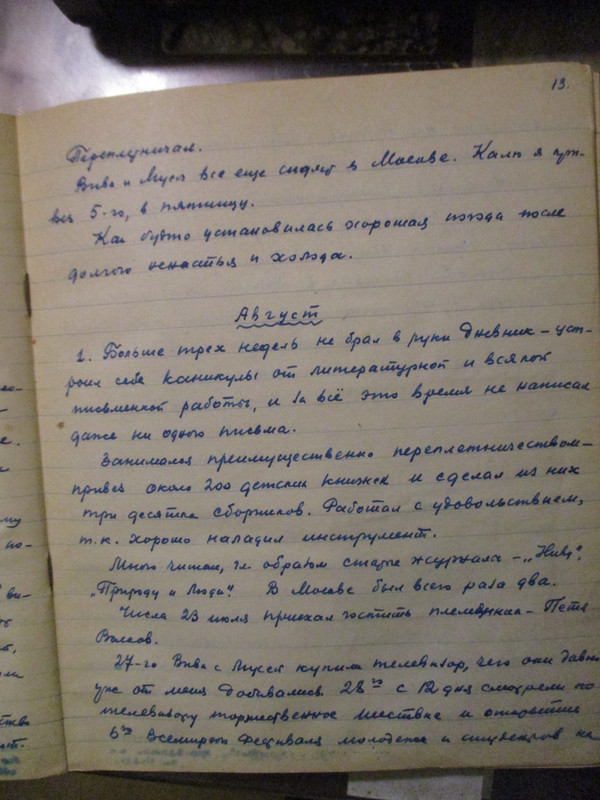 13.
Переплетничал.
Вива и Муся все еще сидят в Москве. Калю я при-
вез 5-го, в пятницу.
Как будто установилась хорошая погода после
долгого ненастья и холода.
Август
1. Больше трех недель не брал в руки дневник – уст-
роил себе каникулы от литературной и всякой
письменной работы, и за всё это время не написал
даже ни одного письма.
Занимался преимущественно переплетничеством –
привез около 200 детских книжек и сделал из них
три десятка сборников. Работал с удовольствием,
т.к. хорошо наладил инструмент.
Много читал, гл. образом старые журналы – „Ниву“,
„Природу и Люди“. В Москве был всего раза два.
Числа 23 июля приехал гостить племянник – Петя
Волков.
27-го Вива с Мусей купили телевизор, чего они давно
уже от меня добивались. 28го с 12 дня смотрели по
телевизору торжественное шествие и открытие
6го Всемирного Фестиваля молодежи и студентов на